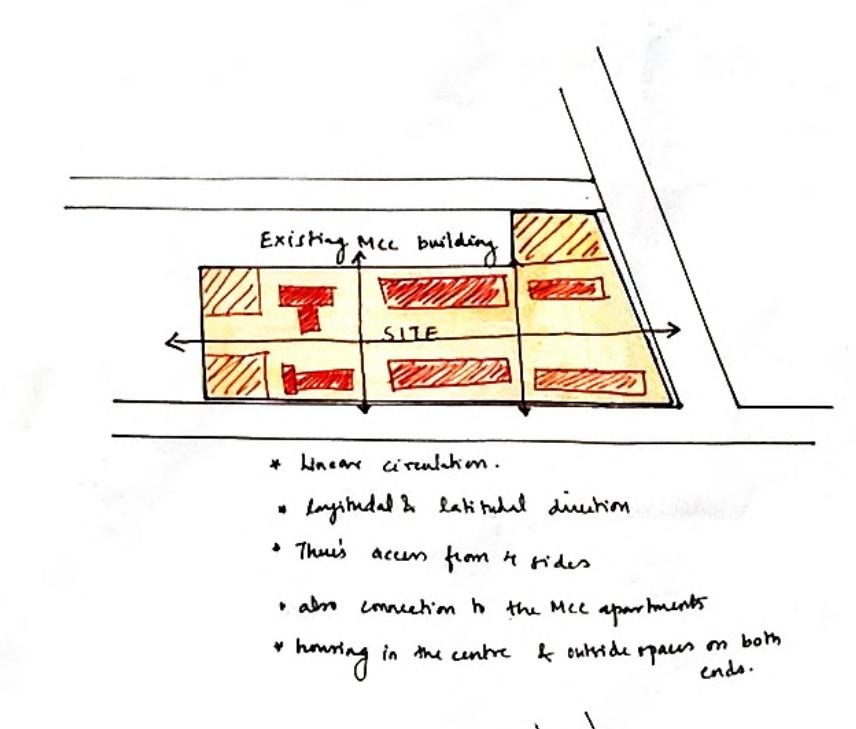 Existing Mcc building
SITE
* Linear circulation.
* longitudal & latitudal direction
* There's access from 4 sides
* also connection to the Mcc apartments
* housing in the centre & outside spaces on both
ends.